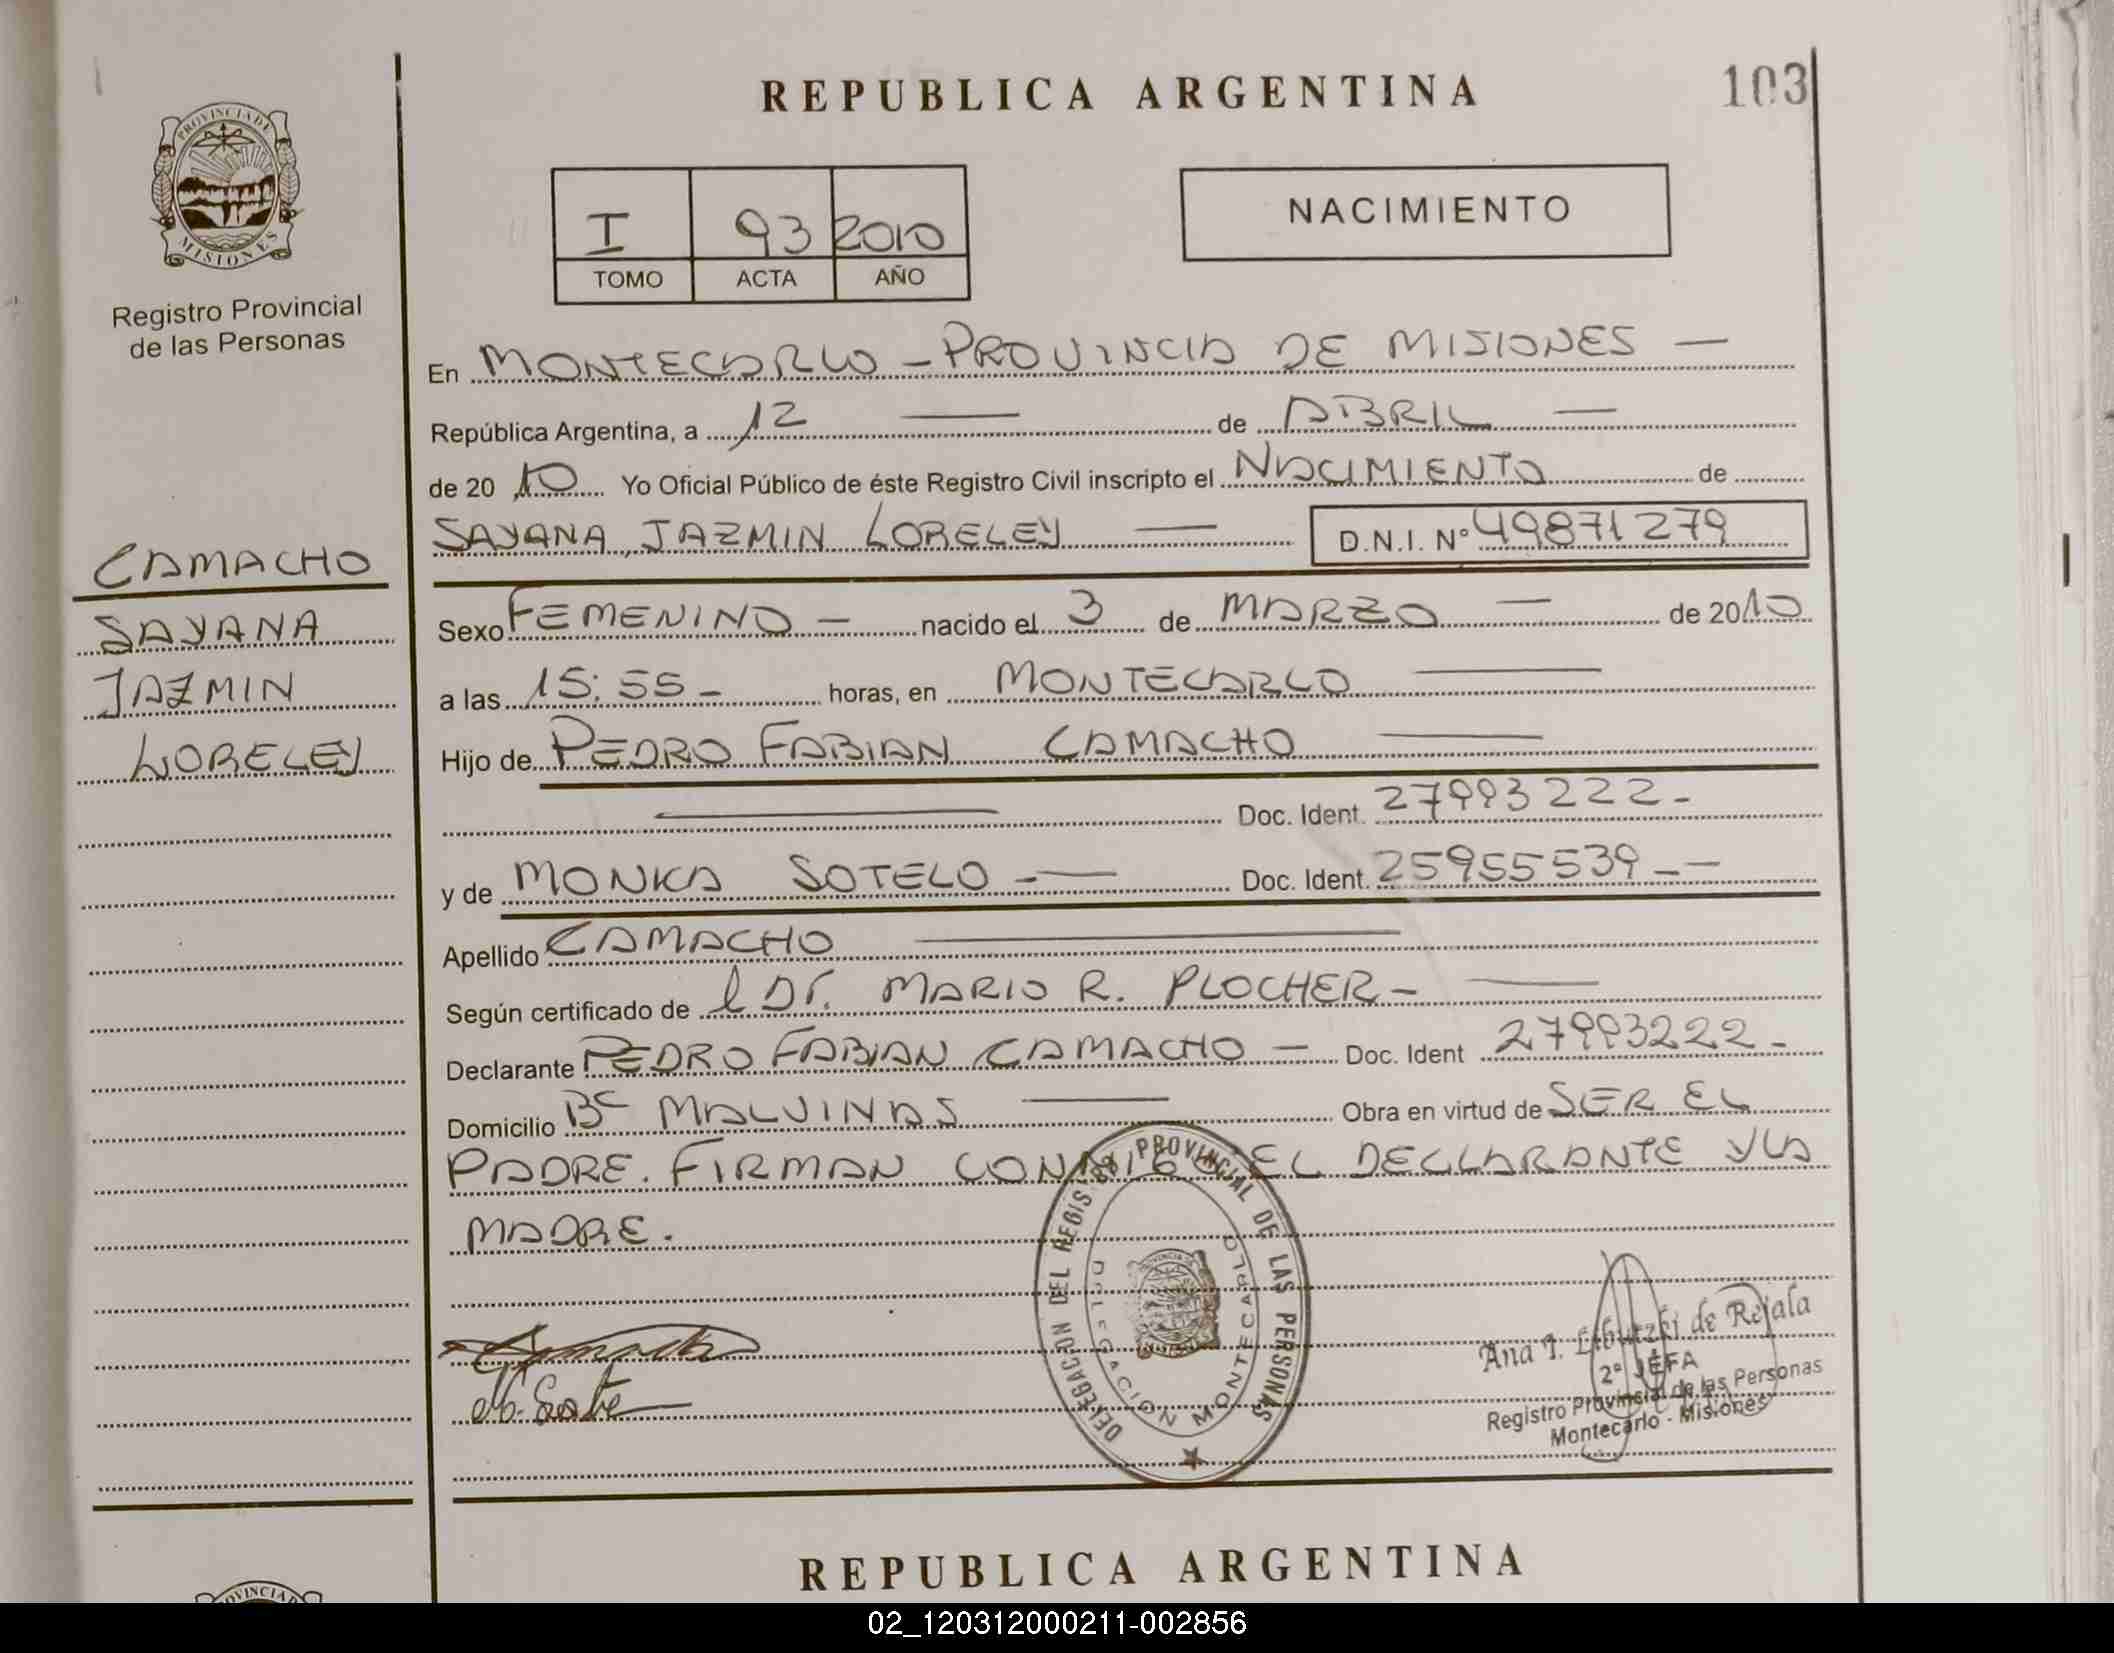 REPUBLICA ARGENTINA
103
PROVINCIA DE
MISIONES
Registro Provincial
de las Personas
I 93 2010
TOMO ACTA AÑO
NACIMIENTO
En MONTECARLO - PROVINCIA DE MISIONES —
República Argentina, a 12 — de ABRIL —
de 20 10 Yo Oficial Público de éste Registro Civil inscripto el NACIMIENTO de
SAYANA JAZMIN LORELEY — D.N.I. Nº 49871279
CAMACHO
SAYANA
JAZMIN
LORELEY
Sexo FEMENINO — nacido el 3 de MARZO — de 2010
a las 15:55 - horas, en MONTECARLO —
Hijo de PEDRO FABIAN CAMACHO —
— Doc. Ident. 27993222-
y de MONICA SOTELO - — Doc. Ident. 25955539 - —
Apellido CAMACHO —
Según certificado de l Dr. MARIO R. PLOCHER - —
Declarante PEDRO FABIAN CAMACHO — Doc. Ident 27993222-
Domicilio Bº MALVINAS — Obra en virtud de SER EL
PADRE. FIRMAN CONMIGO EL DECLARANTE Y LA
MADRE.
DELEGACION DEL REGISTRO PROVINCIAL DE LAS PERSONAS
DELEGACION MONTECARLO
Ana de Rejala
2ª JEFA
Registro Provincial de las Personas
Montecarlo - Misiones
REPUBLICA ARGENTINA
02_120312000211-002856